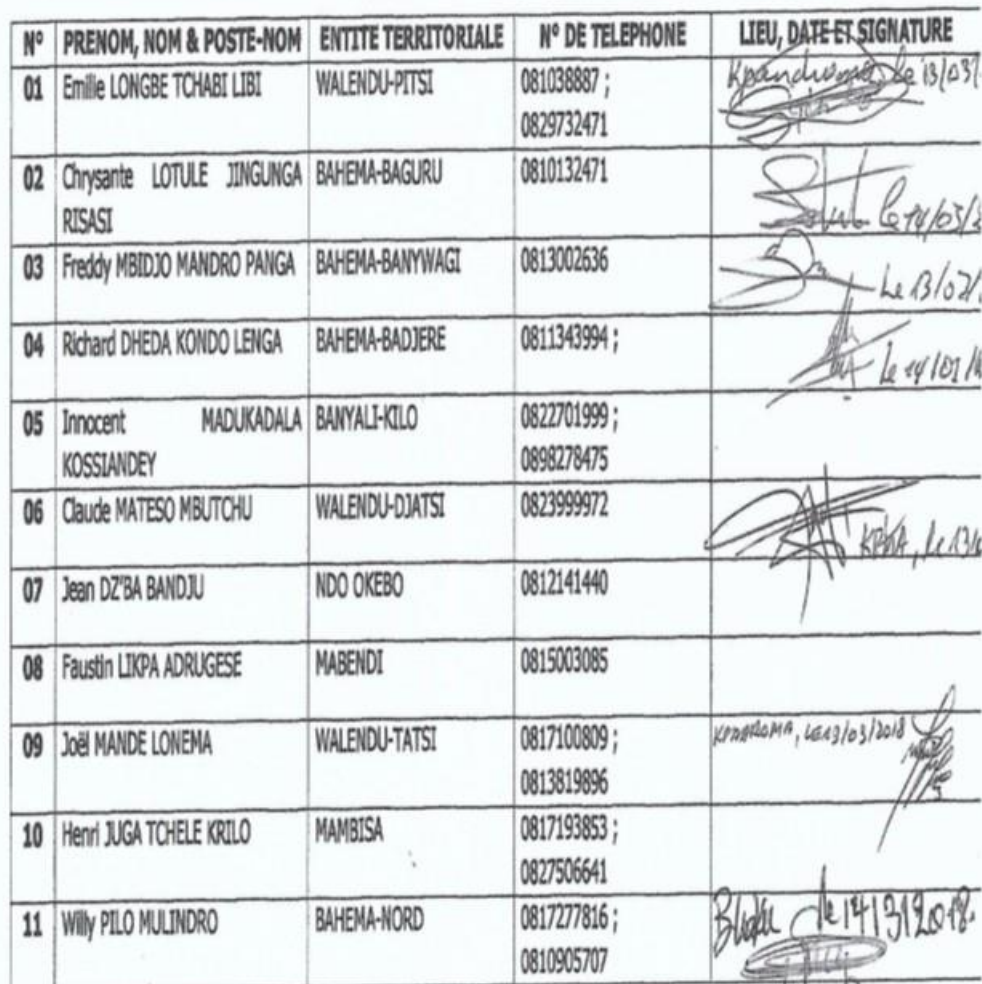 N° PRENOM, NOM & POSTE-NOM ENTITE TERRITORIALE N° DE TELEPHONE LIEU, DATE ET SIGNATURE
01 Emilie LONGBE TCHABI LIBI WALENDU-PITSI 081038887 ; le 13/03/
0829732471
02 Chrysante LOTULE JINGUNGA BAHEMA-BAGURU 0810132471
RISASI le 14/03/
03 Freddy MBIDJO MANDRO PANGA BAHEMA-BANYWAGI 0813002636
Le 13/03/
04 Richard DHEDA KONDO LENGA BAHEMA-BADJERE 0811343994 ;
Le 14/03/
05 Innocent MADUKADALA BANYALI-KILO 0822701999 ;
KOSSIANDEY 0898278475
06 Claude MATESO MBUTCHU WALENDU-DJATSI 0823999972
, le 13/
07 Jean DZ'BA BANDJU NDO OKEBO 0812141440
08 Faustin LIKPA ADRUGESE MABENDI 0815003085
09 Joël MANDE LONEMA WALENDU-TATSI 0817100809 ; KPANDROMA, LE 13/03/2018
0813819896
10 Henri JUGA TCHELE KRILO MAMBISA 0817193853 ;
0827506641
11 Willy PILO MULINDRO BAHEMA-NORD 0817277816 ; le 14/3/2018.
0810905707